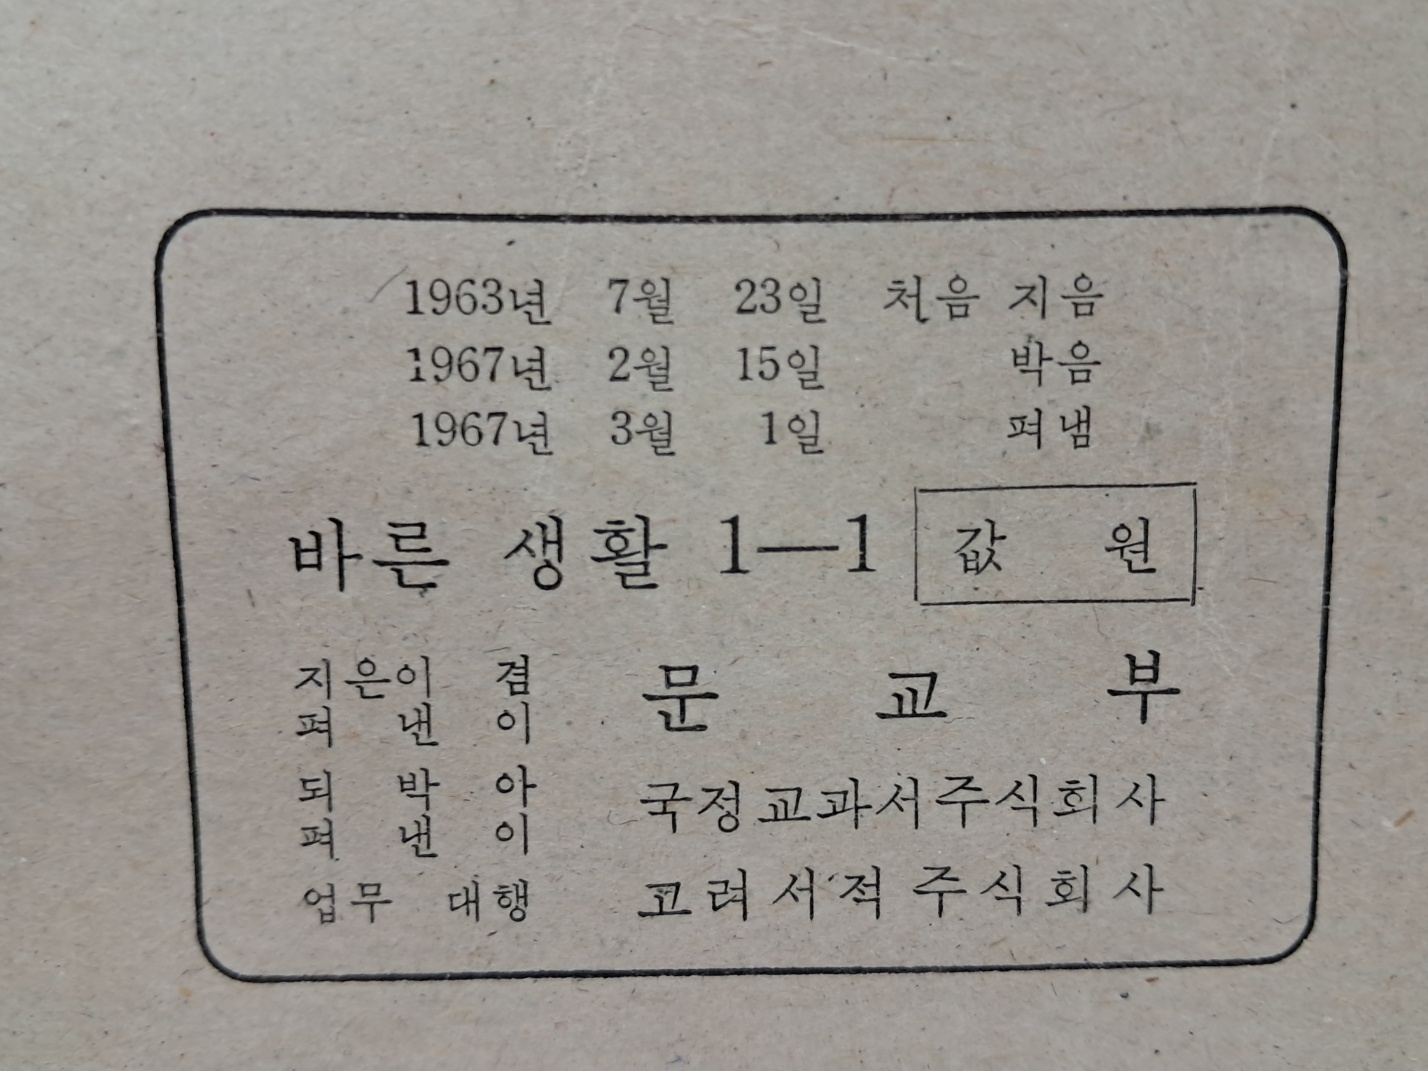 1963년 7월 23일 처음 지음
1967년 2월 15일 박음
1967년 3월 1일 펴냄
바른 생활 1—1 값 원
지은이 겸
펴낸이 문교부
되박아
펴낸이 국정교과서주식회사
업무 대행 고려서적주식회사